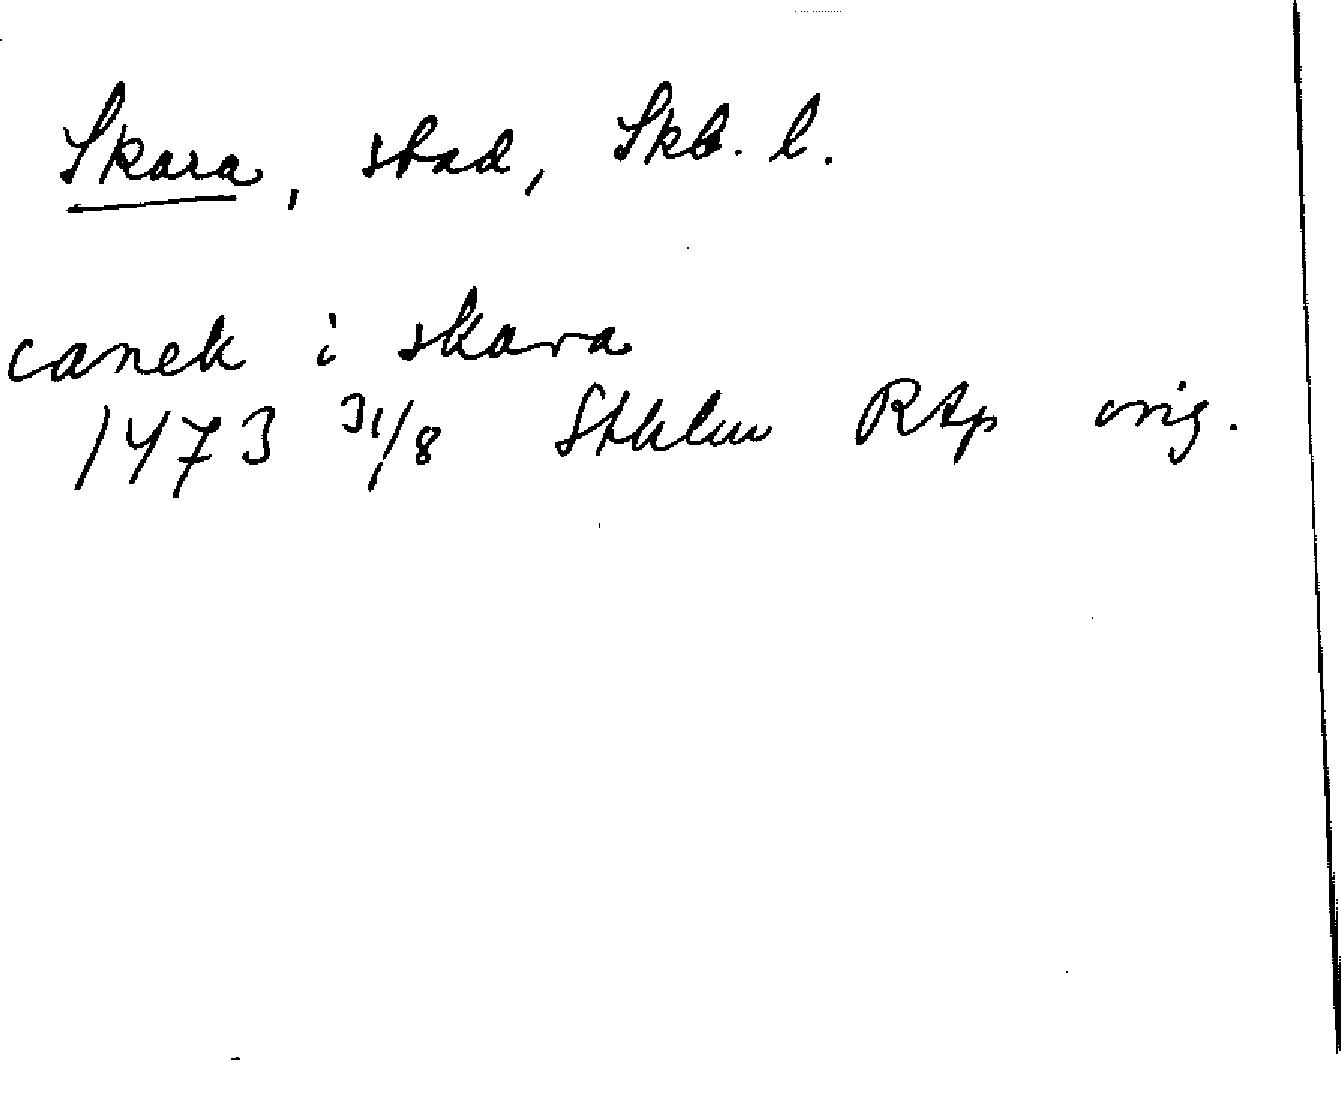 Skara, stad, Skb. l.
canek i skara
1473 31/8 Sthlm RAp orig.